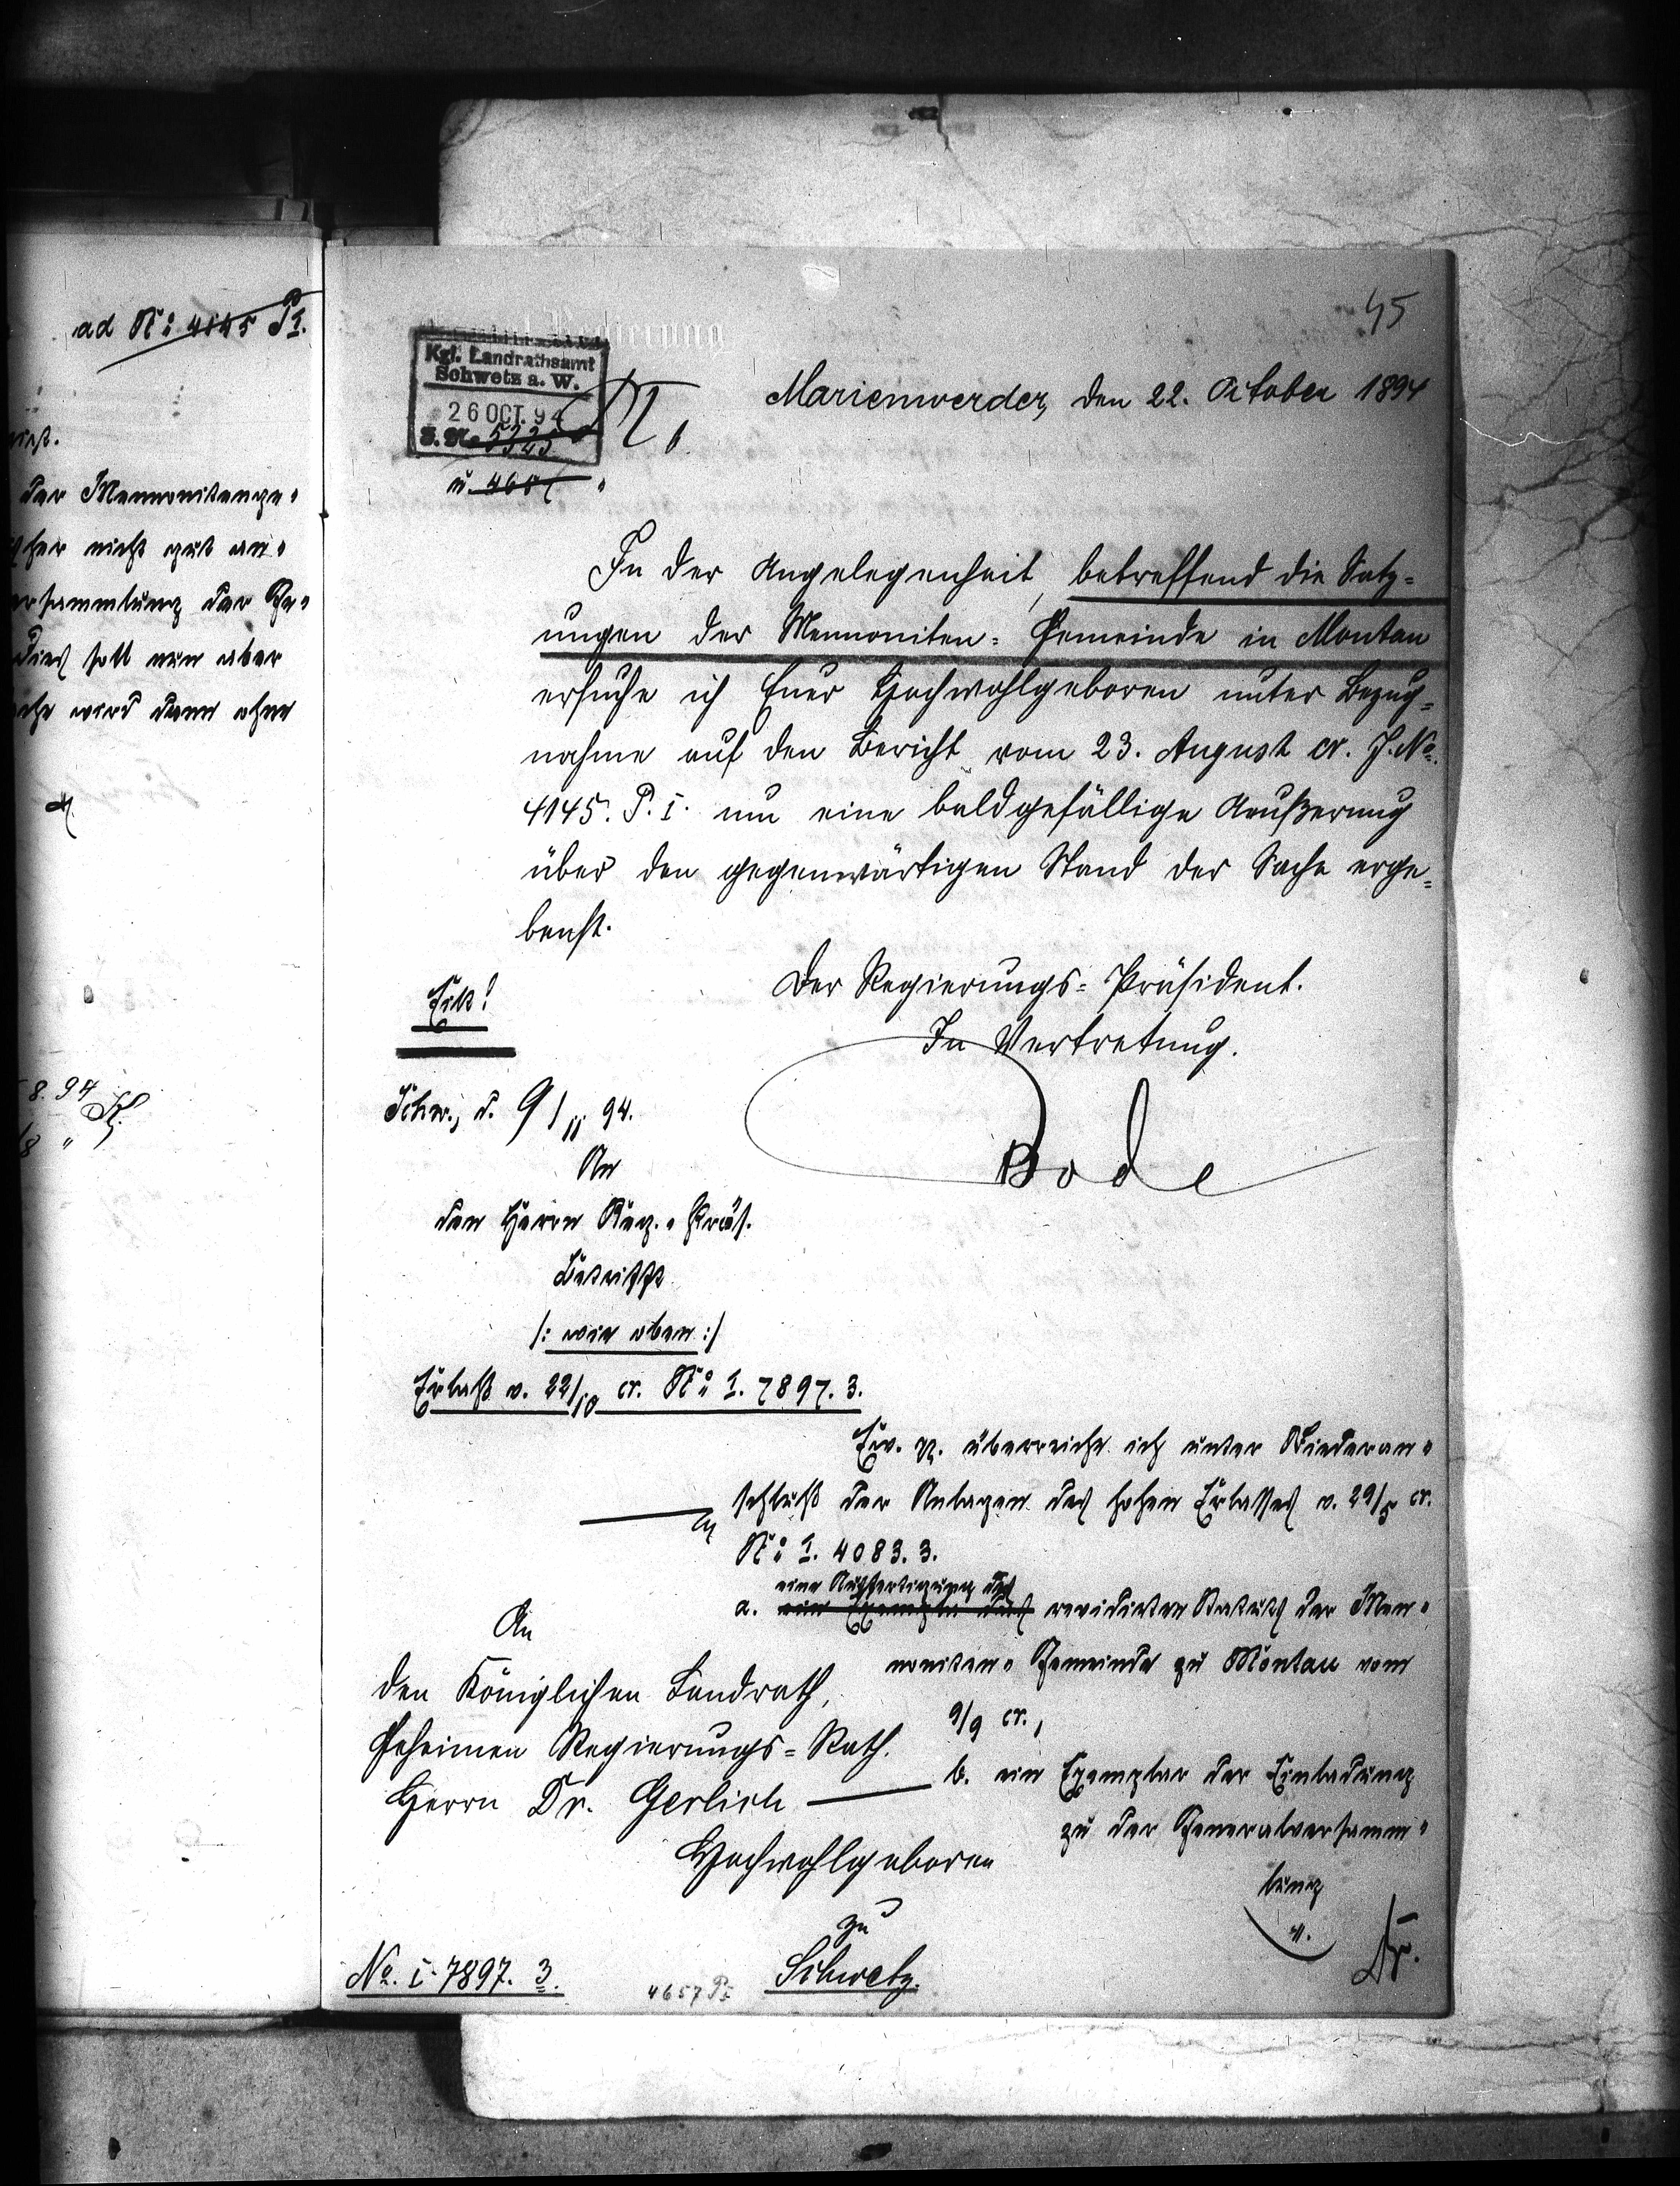 ad No: 4145 PI.
der Mennonitenge-
her nicht gut an-
ersammlung der Ge-
dies soll nun aber
wird dann ohne
8. 94
/8 "
45
Regierung
Kgl. Landrathsamt
Schwetz a. W.
26 OCT. 94
J. No. 5325
u.
Marienwerder, den 22. October 1894
In der Angelegenheit, betreffend die Satz-
ungen der Mennoniten-Gemeinde in Montau
ersuche ich Euer Hochwohlgeboren unter Bezug-
nahme auf den Bericht vom 23. August cr. J. No.
4145. P. I. um eine baldgefällige Aeußerung
über den gegenwärtigen Stand der Sache erge-
benst.
Der Regierungs-Präsident.
In Vertretung.
Bode
Eilt!
Schw., d. 9/11 94.
An
den Herrn Reg.-Präs.
Betrifft
/: wie oben :/
Erlaß v. 22/10 cr. No: I. 7897. 3.
Ew. p. überreiche ich unter Wiederan-
schluß der Anlagen des hohen Erlasses v. 29/5 cr.
No: I. 4083. 3.
eine Ausfertigung des
a. ein Exemplar des revidirten Statuts der Men-
noniten-Gemeinde zu Montau vom
9/9 cr.,
b. ein Exemplar der Einladung
zu der Generalversamm-
lung
An
den Königlichen Landrath,
Geheimen Regierungs-Rath.
Herrn Dr. Gerlich
Hochwohlgeboren
zu
Schwetz.
No. I. 7897. 3.
4657 PI